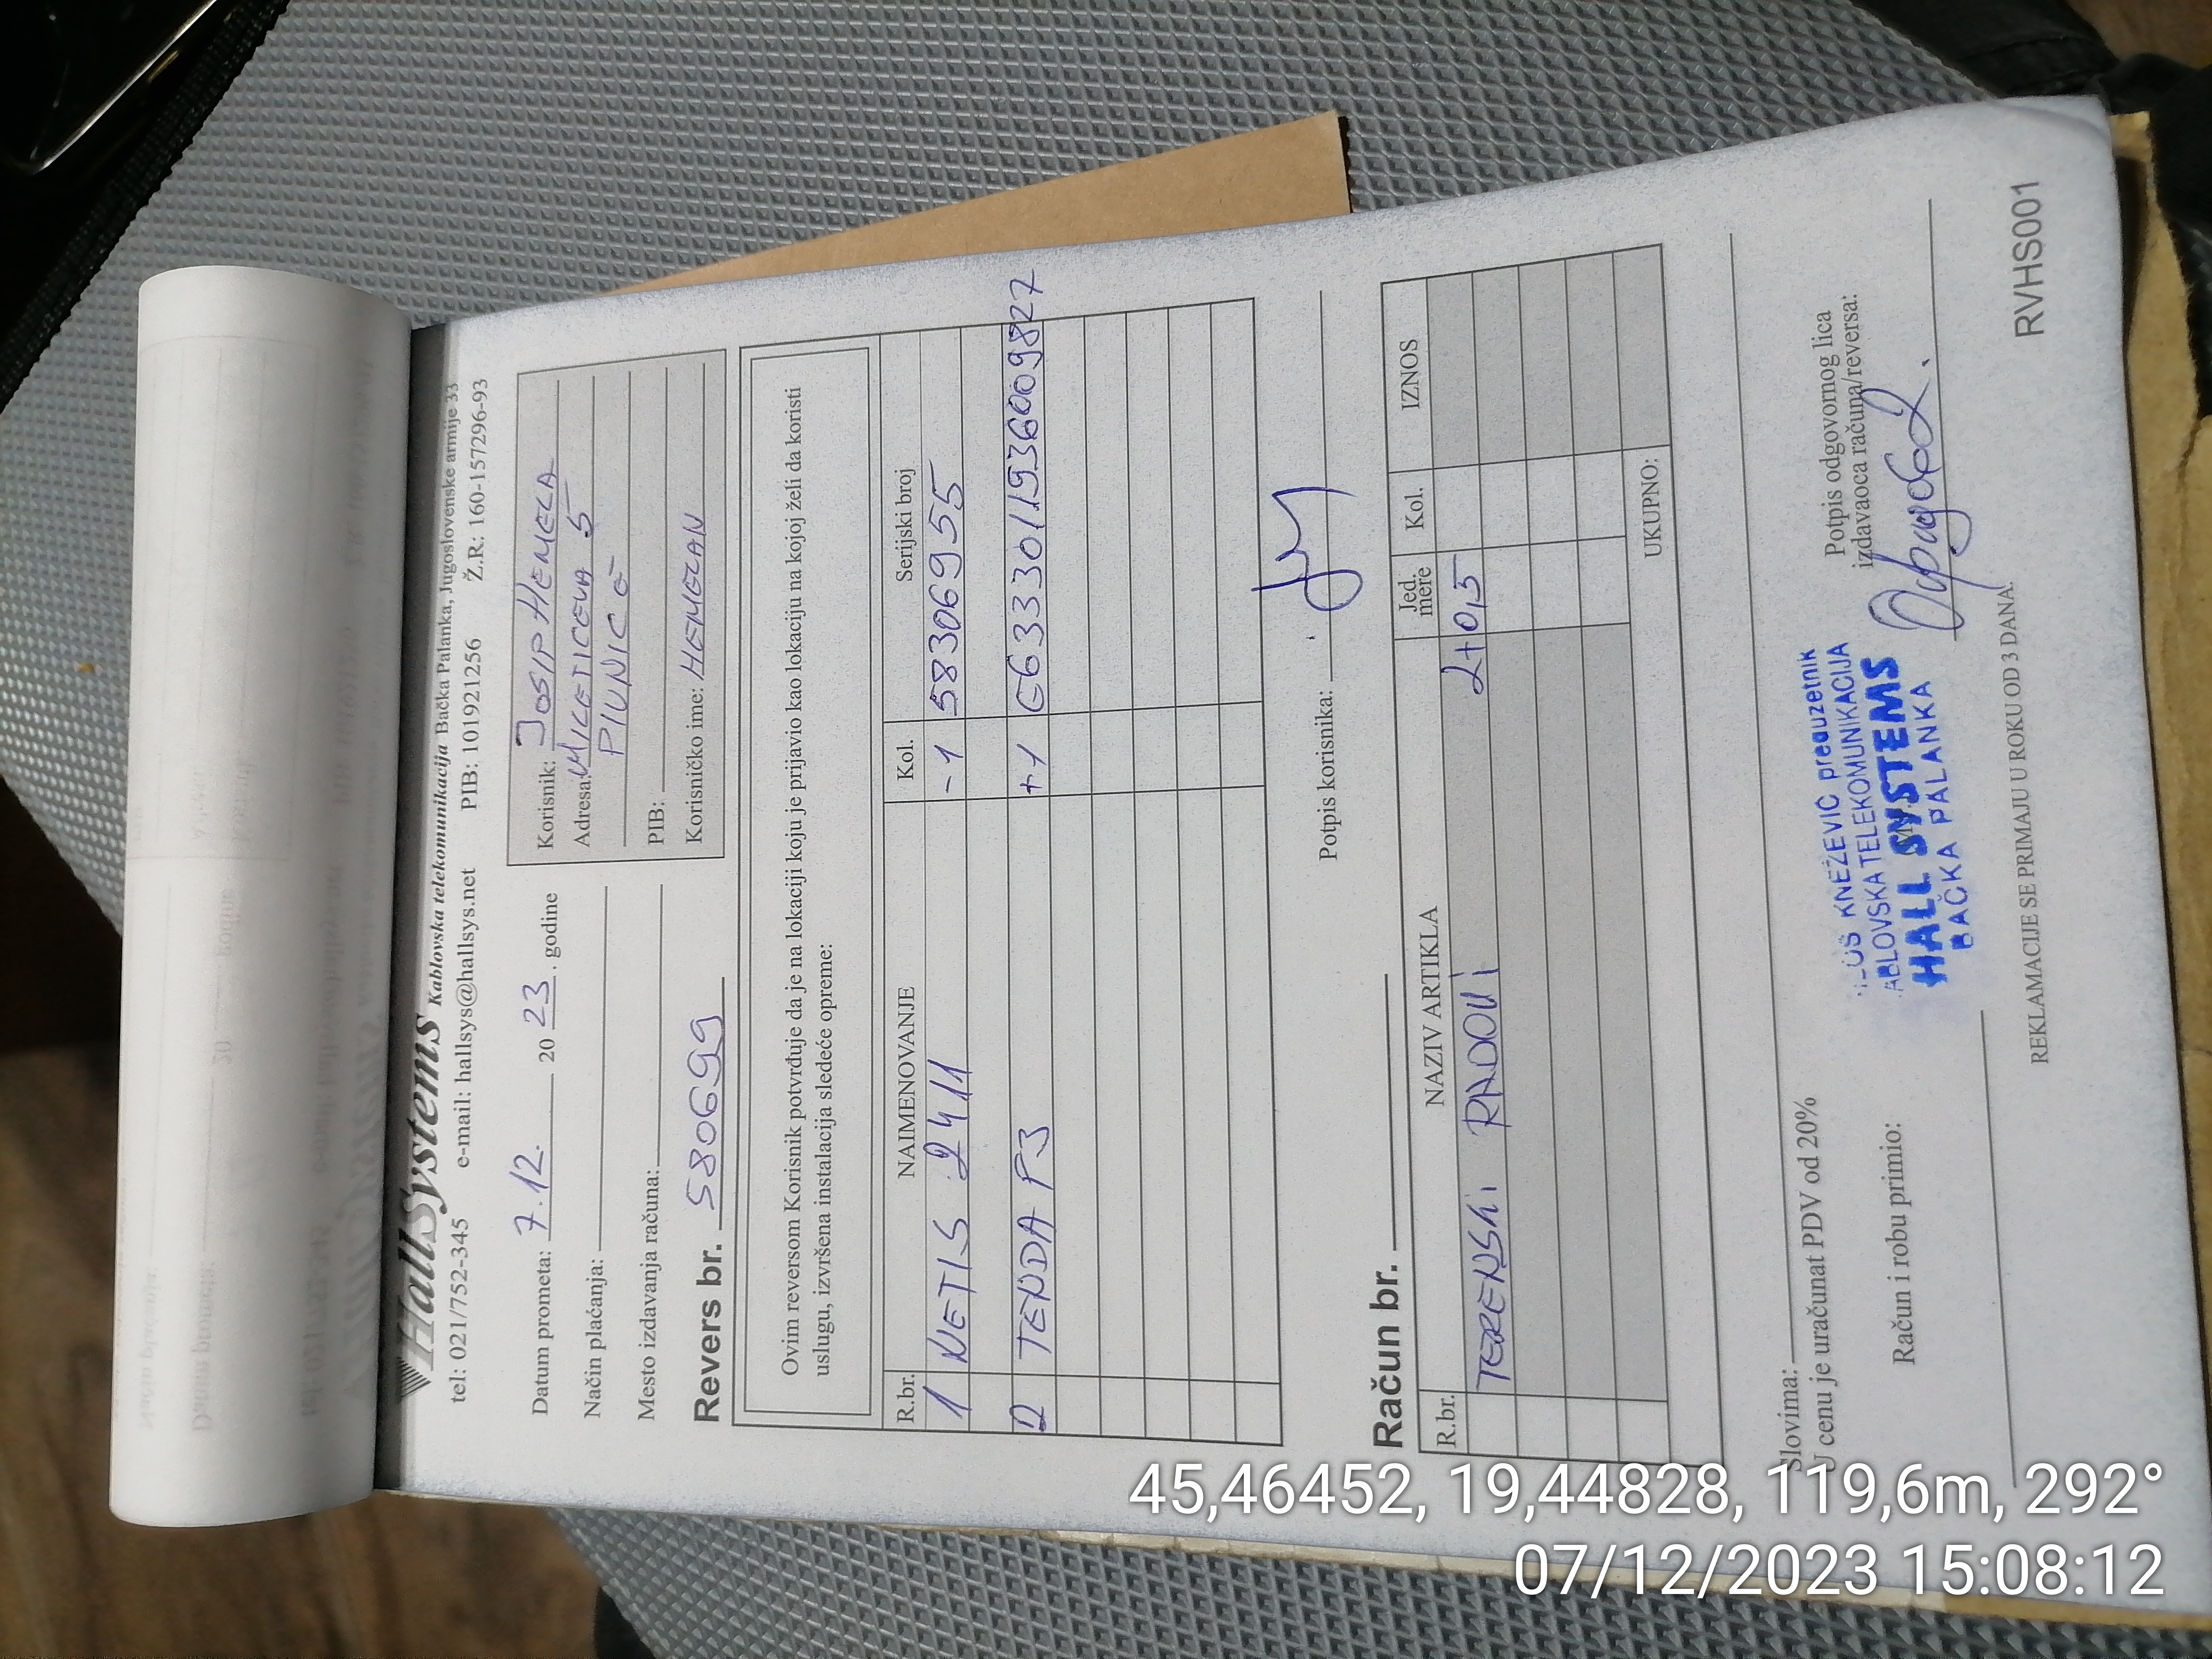 HallSystems Kablovska telekomunikacija Bačka Palanka, Jugoslovenske armije 33
tel: 021/752-345 e-mail: hallsys@hallsys.net PIB: 101921256 Ž.R: 160-157296-93
Datum prometa: 7.12. 2023. godine
Način plaćanja:
Mesto izdavanja računa:
Korisnik: JOSIP HEMELA
Adresa: MILETICEVA 5
PIVNICE
PIB:
Korisničko ime: HEMELAN
Revers br. 580699
Ovim reversom Korisnik potvrđuje da je na lokaciji koju je prijavio kao lokaciju na kojoj želi da koristi
uslugu, izvršena instalacija sledeće opreme:
R.br. NAIMENOVANJE Kol. Serijski broj
1 NETIS 2411 -1 583069955
2 TENDA F3 +1 E6333011936009827
Potpis korisnika:
Račun br.
R.br. NAZIV ARTIKLA Jed. mere Kol. IZNOS
TERENSKI RADOVI 2+0,5
UKUPNO:
Slovima:
U cenu je uračunat PDV od 20%
Račun i robu primio:
Potpis odgovornog lica
izdavaoca računa/reversa:
KNEŽEVIĆ preduzetnik
ABLOVSKA TELEKOMUNIKACIJA
HALL SYSTEMS
BAČKA PALANKA
REKLAMACIJE SE PRIMAJU U ROKU OD 3 DANA.
RVHS001
45,46452, 19,44828, 119,6m, 292°
07/12/2023 15:08:12